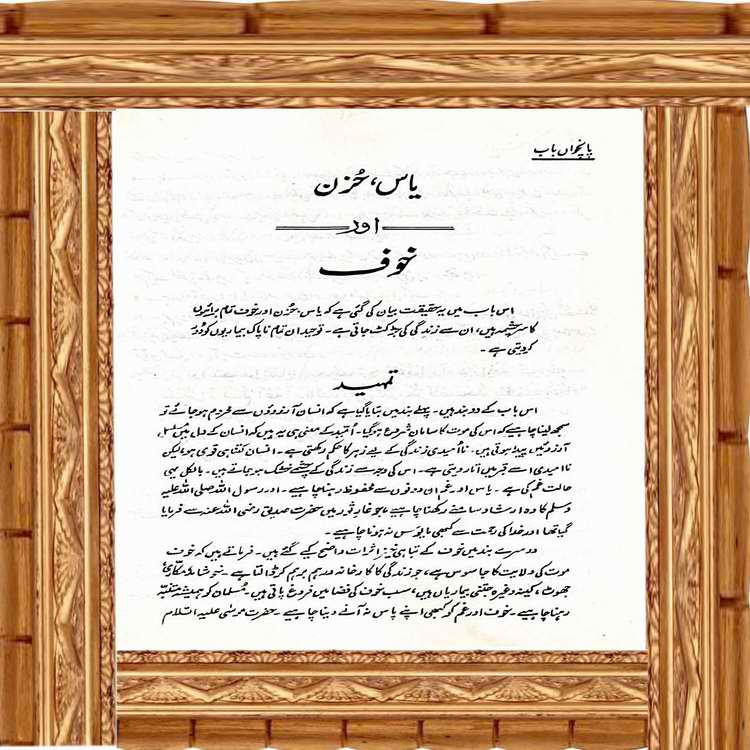 پانچواں باب
یاس، حُزن
اور
خوف
اس باب میں یہ حقیقت بیان کی گئی ہے کہ یاس، حُزن اور خوف تمام برائیوں
کا سرچشمہ ہیں، ان سے زندگی کی جڑ کٹ جاتی ہے۔ توحید ان تمام ناپاک بیماریوں کو دُور
کر دیتی ہے۔
تمہید
اس باب کے دو بند ہیں۔ پہلے بند میں بتایا گیا ہے کہ انسان آرزوؤں سے محروم ہو جائے تو
سمجھ لینا چاہیے کہ اس کی موت کا سامان شروع ہو گیا۔ اُمّید کے معنی ہی یہ ہیں کہ انسان کے دل میں مسلسل
آرزوئیں پیدا ہوتی رہیں۔ نااُمیدی زندگی کے لیے زہر کا حکم رکھتی ہے۔ انسان کتنا ہی قوی ہو، لیکن
نااُمیدی اسے قبر میں اُتار دیتی ہے۔ اس کی وجہ سے زندگی کے چشمے خشک ہو جاتے ہیں۔ بالکل یہی
حالت غم کی ہے۔ یاس اور غم ان دونوں سے محفوظ رہنا چاہیے۔ اور رسول اللہ صلی اللہ علیہ
وسلم کا وہ ارشاد سامنے رکھنا چاہیے، جو غارِ ثور میں حضرت صدیق رضی اللہ عنہ سے فرمایا
گیا تھا اور خدا کی رحمت سے کبھی مایوس نہ ہونا چاہیے۔
دوسرے بند میں خوف کے تباہی خیز اثرات واضح کیے گئے ہیں۔ فرماتے ہیں کہ خوف
موت کی ولایت کا جاسوس ہے، جو زندگی کا کارخانہ درہم برہم کر ڈالتا ہے۔ خوشامد، مکّاری
جھوٹ، کینہ وغیرہ جتنی بیماریاں ہیں، سب خوف کی فضا میں فروغ پاتی ہیں۔ مُسلمان کو ہمیشہ متنبّہ
رہنا چاہیے۔ خوف اور غم کو کبھی اپنے پاس نہ آنے دینا چاہیے۔ حضرت موسٰی علیہ السّلام